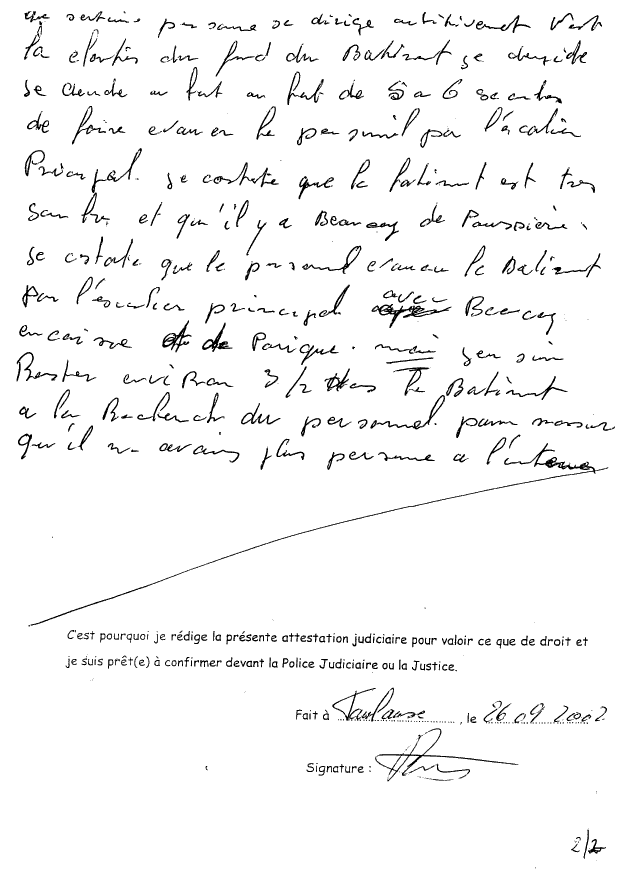 que sertaine persone se dirige
la du fond du Batiment je decide
se decide au fait au fait de 5 a 6 secondes
de faire evacuer le personnel par l'escalier
Principal. je costate que le batiment est tres
sombre et qu'il y a Beaucoup de Poussière.
je costate que le personnel evacue le Batiment
par l'escalier principal avec Beaucoup
de Panique. mais j'en suis
Rester environ 3/2 le Batiment
a la Recherche du personnel. pour
qu'il n avais plus persone a l'interieur
C'est pourquoi je rédige la présente attestation judiciaire pour valoir ce que de droit et
je suis prêt(e) à confirmer devant la Police Judiciaire ou la Justice.
Fait à Toulouse, le 26 09 2002
Signature :
2/2